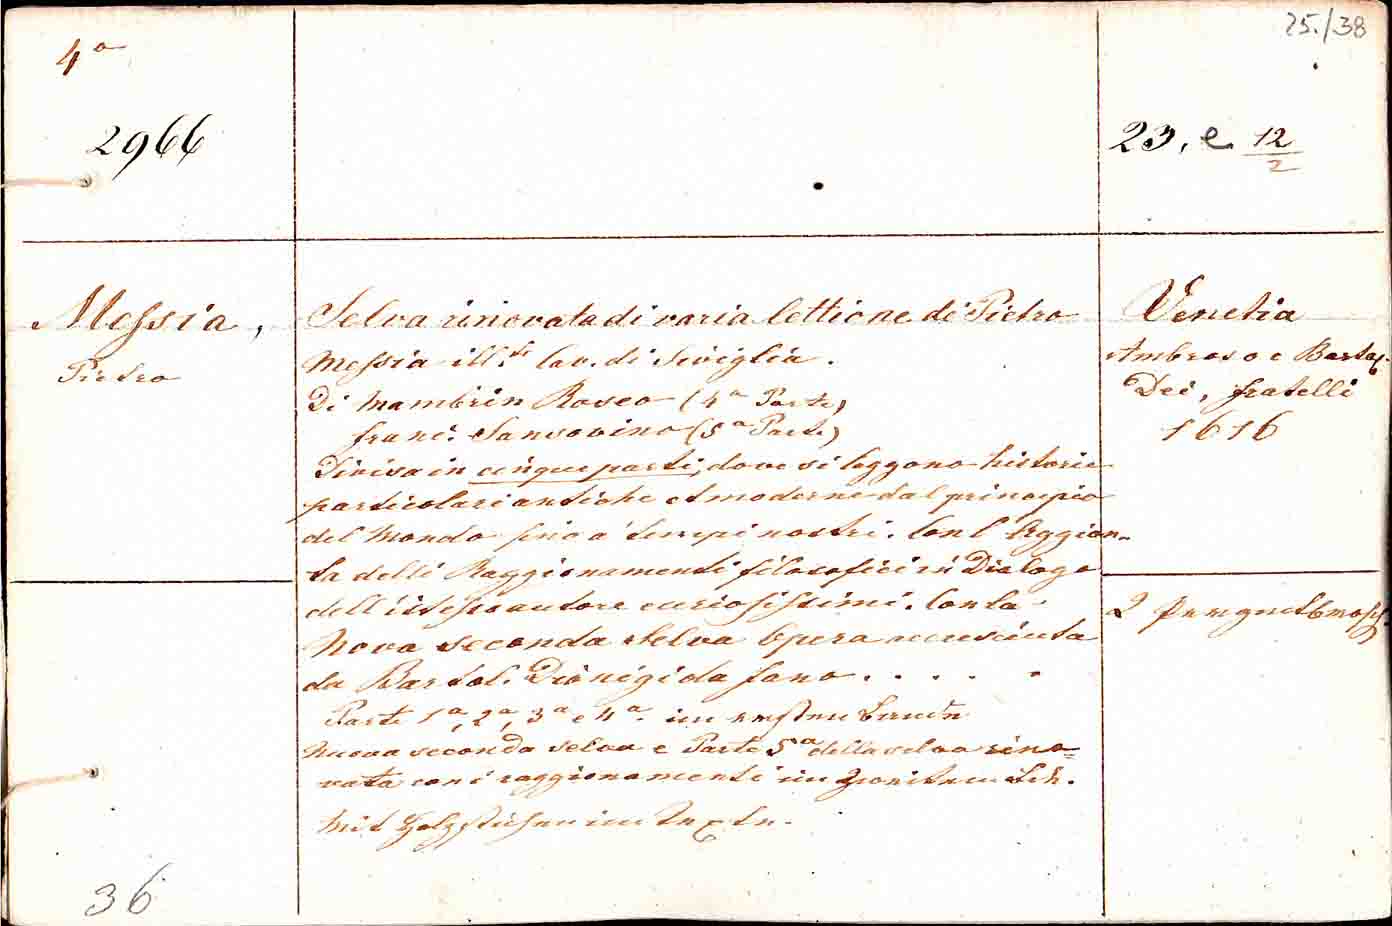 25./38
4º
2966
23, e 12/2
Messia,
Pietro
Selva rinovata di varia lettione di Pietro
Messia ill.re Cav. di Siviglia.
Di Mambrin Roseo (4ª Parte)
franc. Sansovino (5ª Parte)
Divisa in cinque parti, dove si leggono historie
particolari antiche et moderne dal principio
del Mondo fino a' tempi nostri. Con l'Aggion-
ta delli Raggionamenti filosofici in Dialogo
dell'istesso autore curiosissimi. Con la
Nova seconda Selva Opera accresciuta
da Bartol. Dionigi da fano . . . . .
Parte 1ª, 2ª, 3ª e 4ª im ersten Bande
Nuova seconda selva e Parte 5ª della selva rino=
vata con i raggionamenti im zweiten Bde.
Mit Holzstichen im Texte.
Venetia
Ambroso e Bartol.
Dei, fratelli
1616
2 Pergmtbrosch.
36